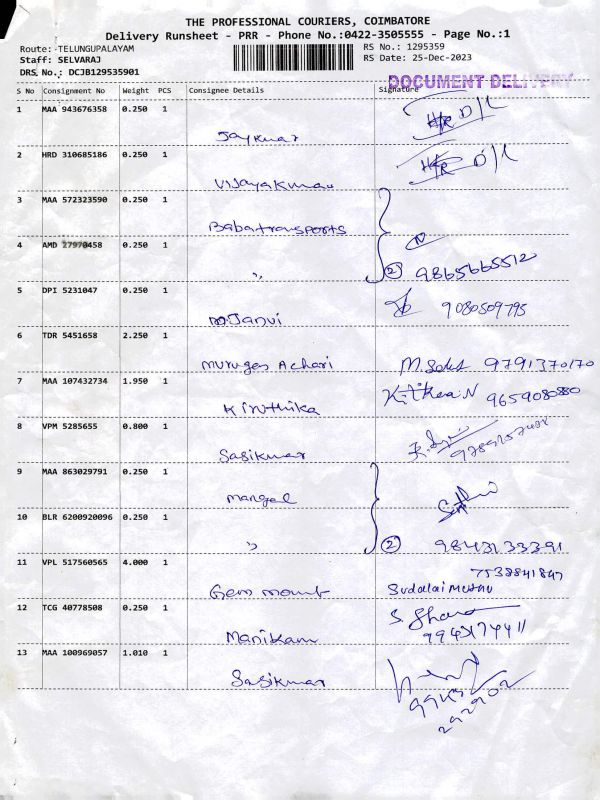 THE PROFESSIONAL COURIERS, COIMBATORE
Delivery Runsheet - PRR - Phone No.:0422-3505555 - Page No.:1
Route: -TELUNGUPALAYAM RS No.: 1295359
Staff: SELVARAJ RS Date: 25-Dec-2023
DRS No.: DCJB129535901
DOCUMENT DELIVERY
S No Consignment No Weight PCS Consignee Details Signature
1 MAA 943676358 0.250 1
Jaykumar D/L
2 HRD 310685186 0.250 1
Vijayakumar D/L
3 MAA 572323590 0.250 1
Babatransports
4 AMD 27970458 0.250 1
〃 2 9865665512
5 DPI 5231047 0.250 1
M.Janvi 9080509795
6 TDR 5451658 2.250 1
Muruges Achari 9791370170
7 MAA 107432734 1.950 1
Kiruthika 9659080880
8 VPM 5285655 0.800 1
Sasikumar
9 MAA 863029791 0.250 1
Mangal
10 BLR 6200920096 0.250 1
〃 2 9843133391
11 VPL 517560565 4.000 1 7538841847
Gem mount Sudalai Muthu
12 TCG 40778508 0.250 1
Manikam
13 MAA 100969057 1.010 1
Sasikumar